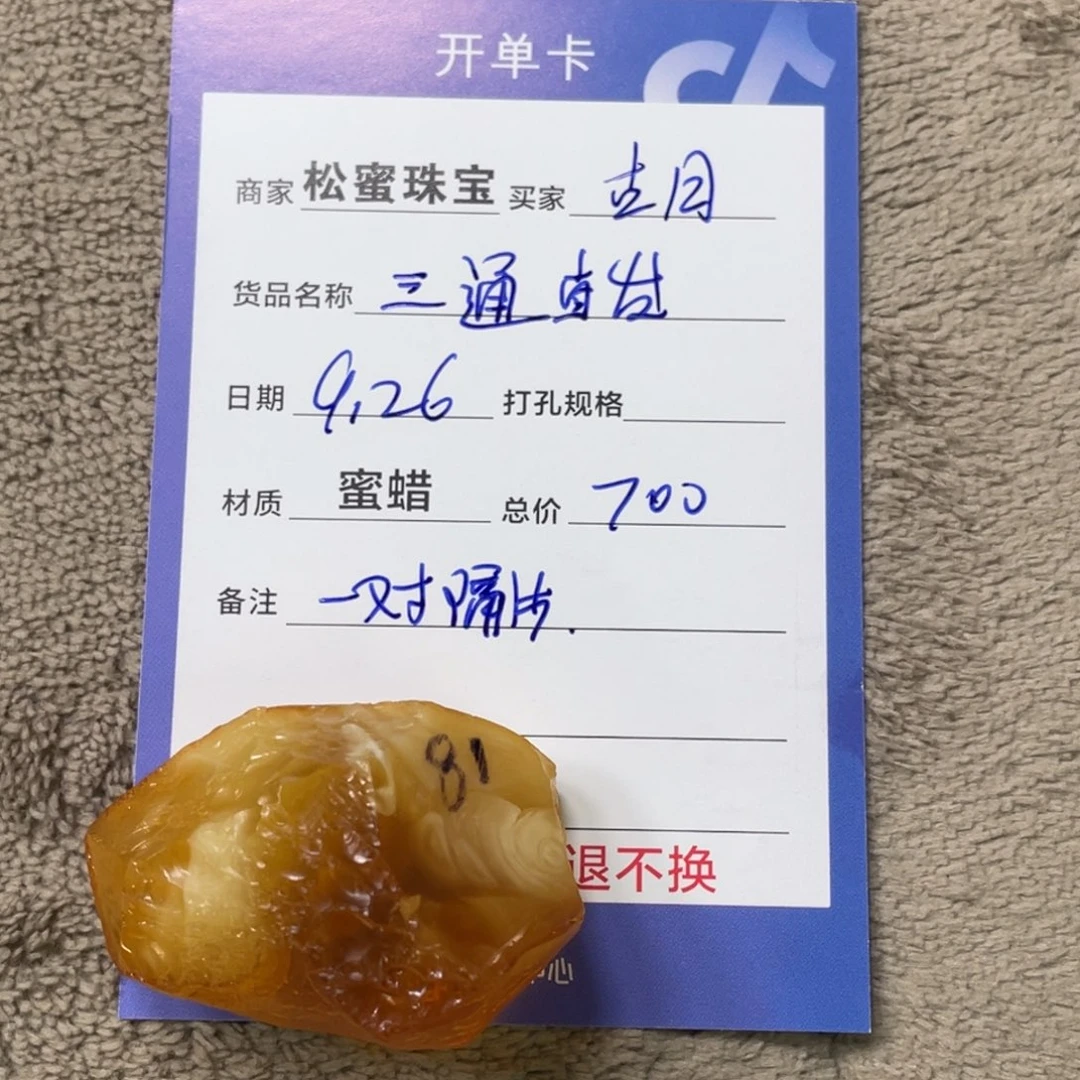 开单卡
商家 松蜜珠宝 买家 古月
货品名称 三通 直发
日期 9.26 打孔规格
材质 蜜蜡 总价 700
备注 一对隔片.
81
退不换
心